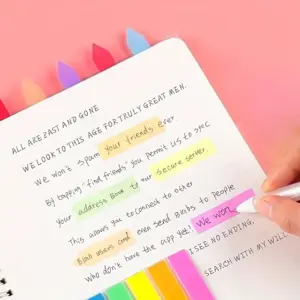 ALL ARE PAST AND GONE
WE LOOK TO THIS AGE FOR TRULY GREAT MEN.
We won't spam your friends ever
By tapping 'find friends' you permit us to sync
your address book to our secure server.
This allows you to connect to other
Bimb users and even send Bimbs to people
who don't have the app yet! We won
I SEE NO ENDING,
SEARCH WITH MY WILL